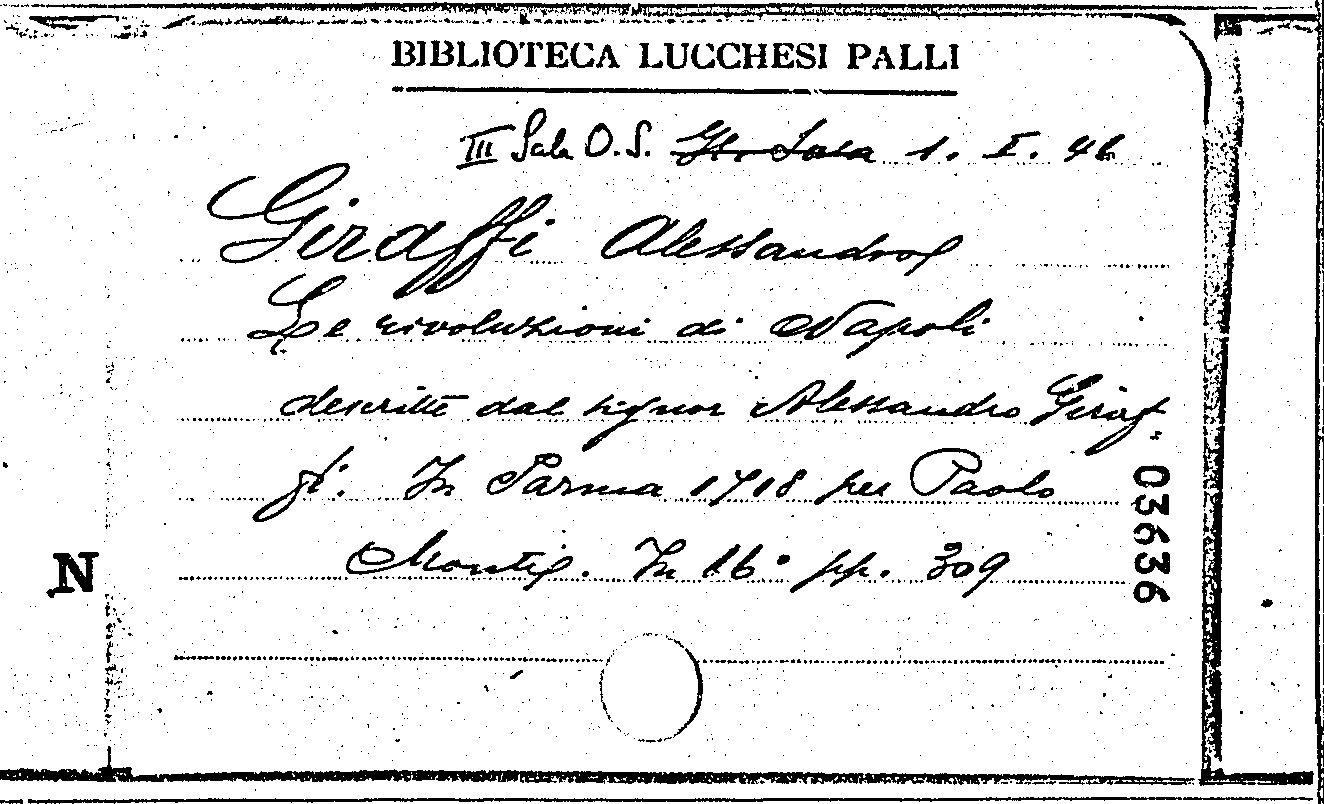 BIBLIOTECA LUCCHESI PALLI
III Sala O.S. 1. I. 46
Giraffi Alessandro
Le rivoluzioni di Napoli
descritte dal signor Alessandro Giraf
fi. In Parma 1718 per Paolo
Monti. In 16° pp. 309
03636
N